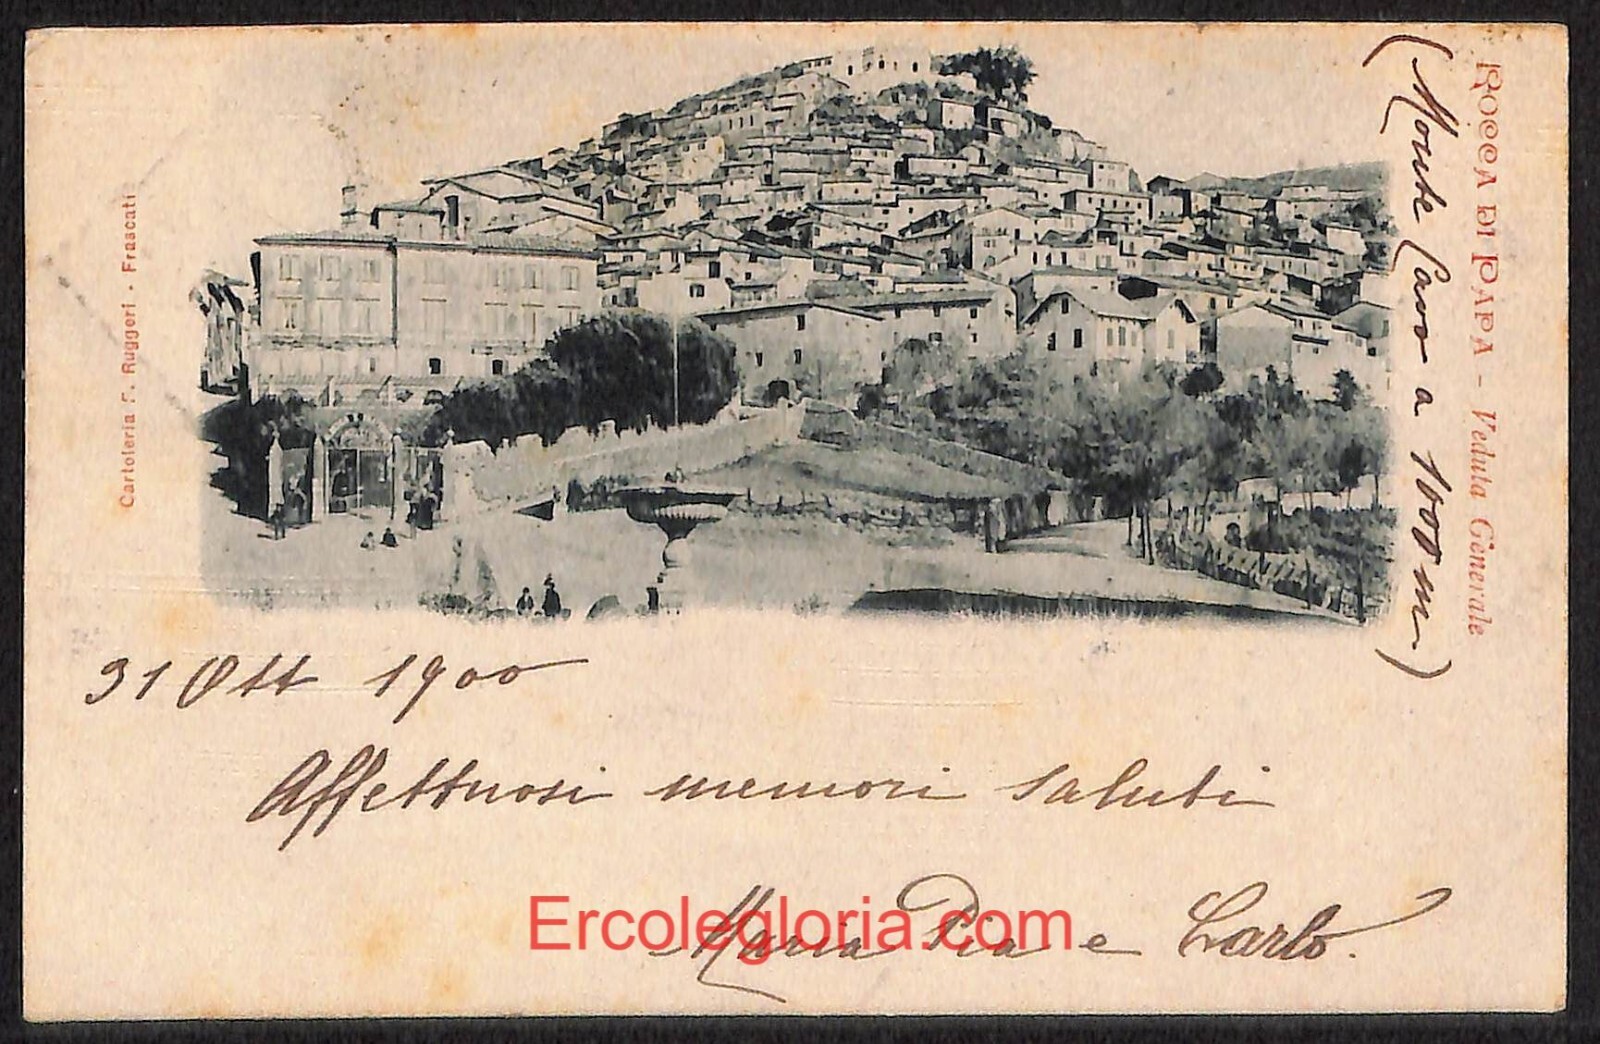 Cartoleria F. Ruggeri - Frascati
ROCCA DI PAPA - Veduta Generale
(Monte Cavo a 1000 m)
31 Ott 1900
Affettuosi memori saluti
Maria Pia e Carlo.
Ercolegloria.com